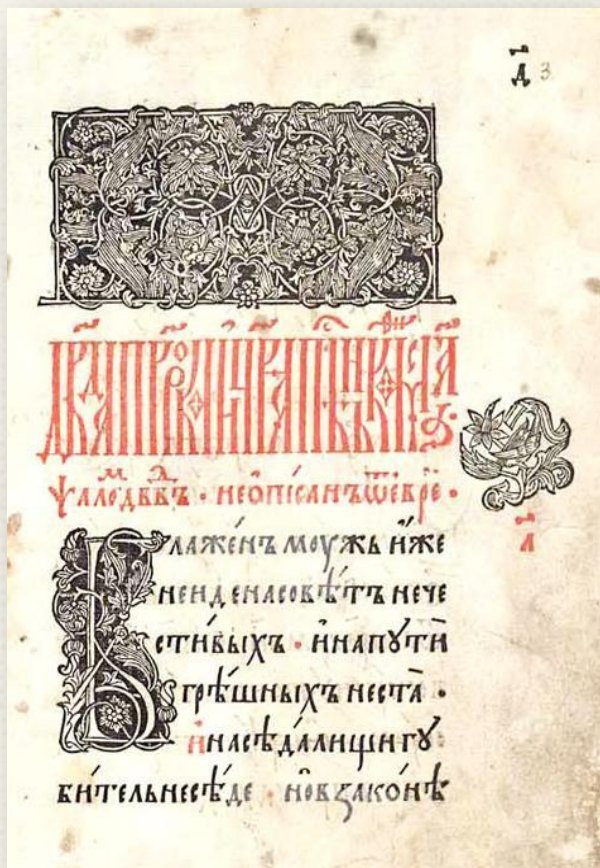 д҃ 3
ѱал двⷣвъ · не ѻпи́санъ ѿ е҆вре́й ·
а҃
Блаже́нъ моу́жь и҆́же
не и҆́де на совѣ́тъ нече
сти́выхъ · и҆ на путѝ
грѣ́шныхъ не ста̀ ·
и҆ на сѣда́лищи гу
би́тель не сѣ́де · но в ꙁако́нѣ